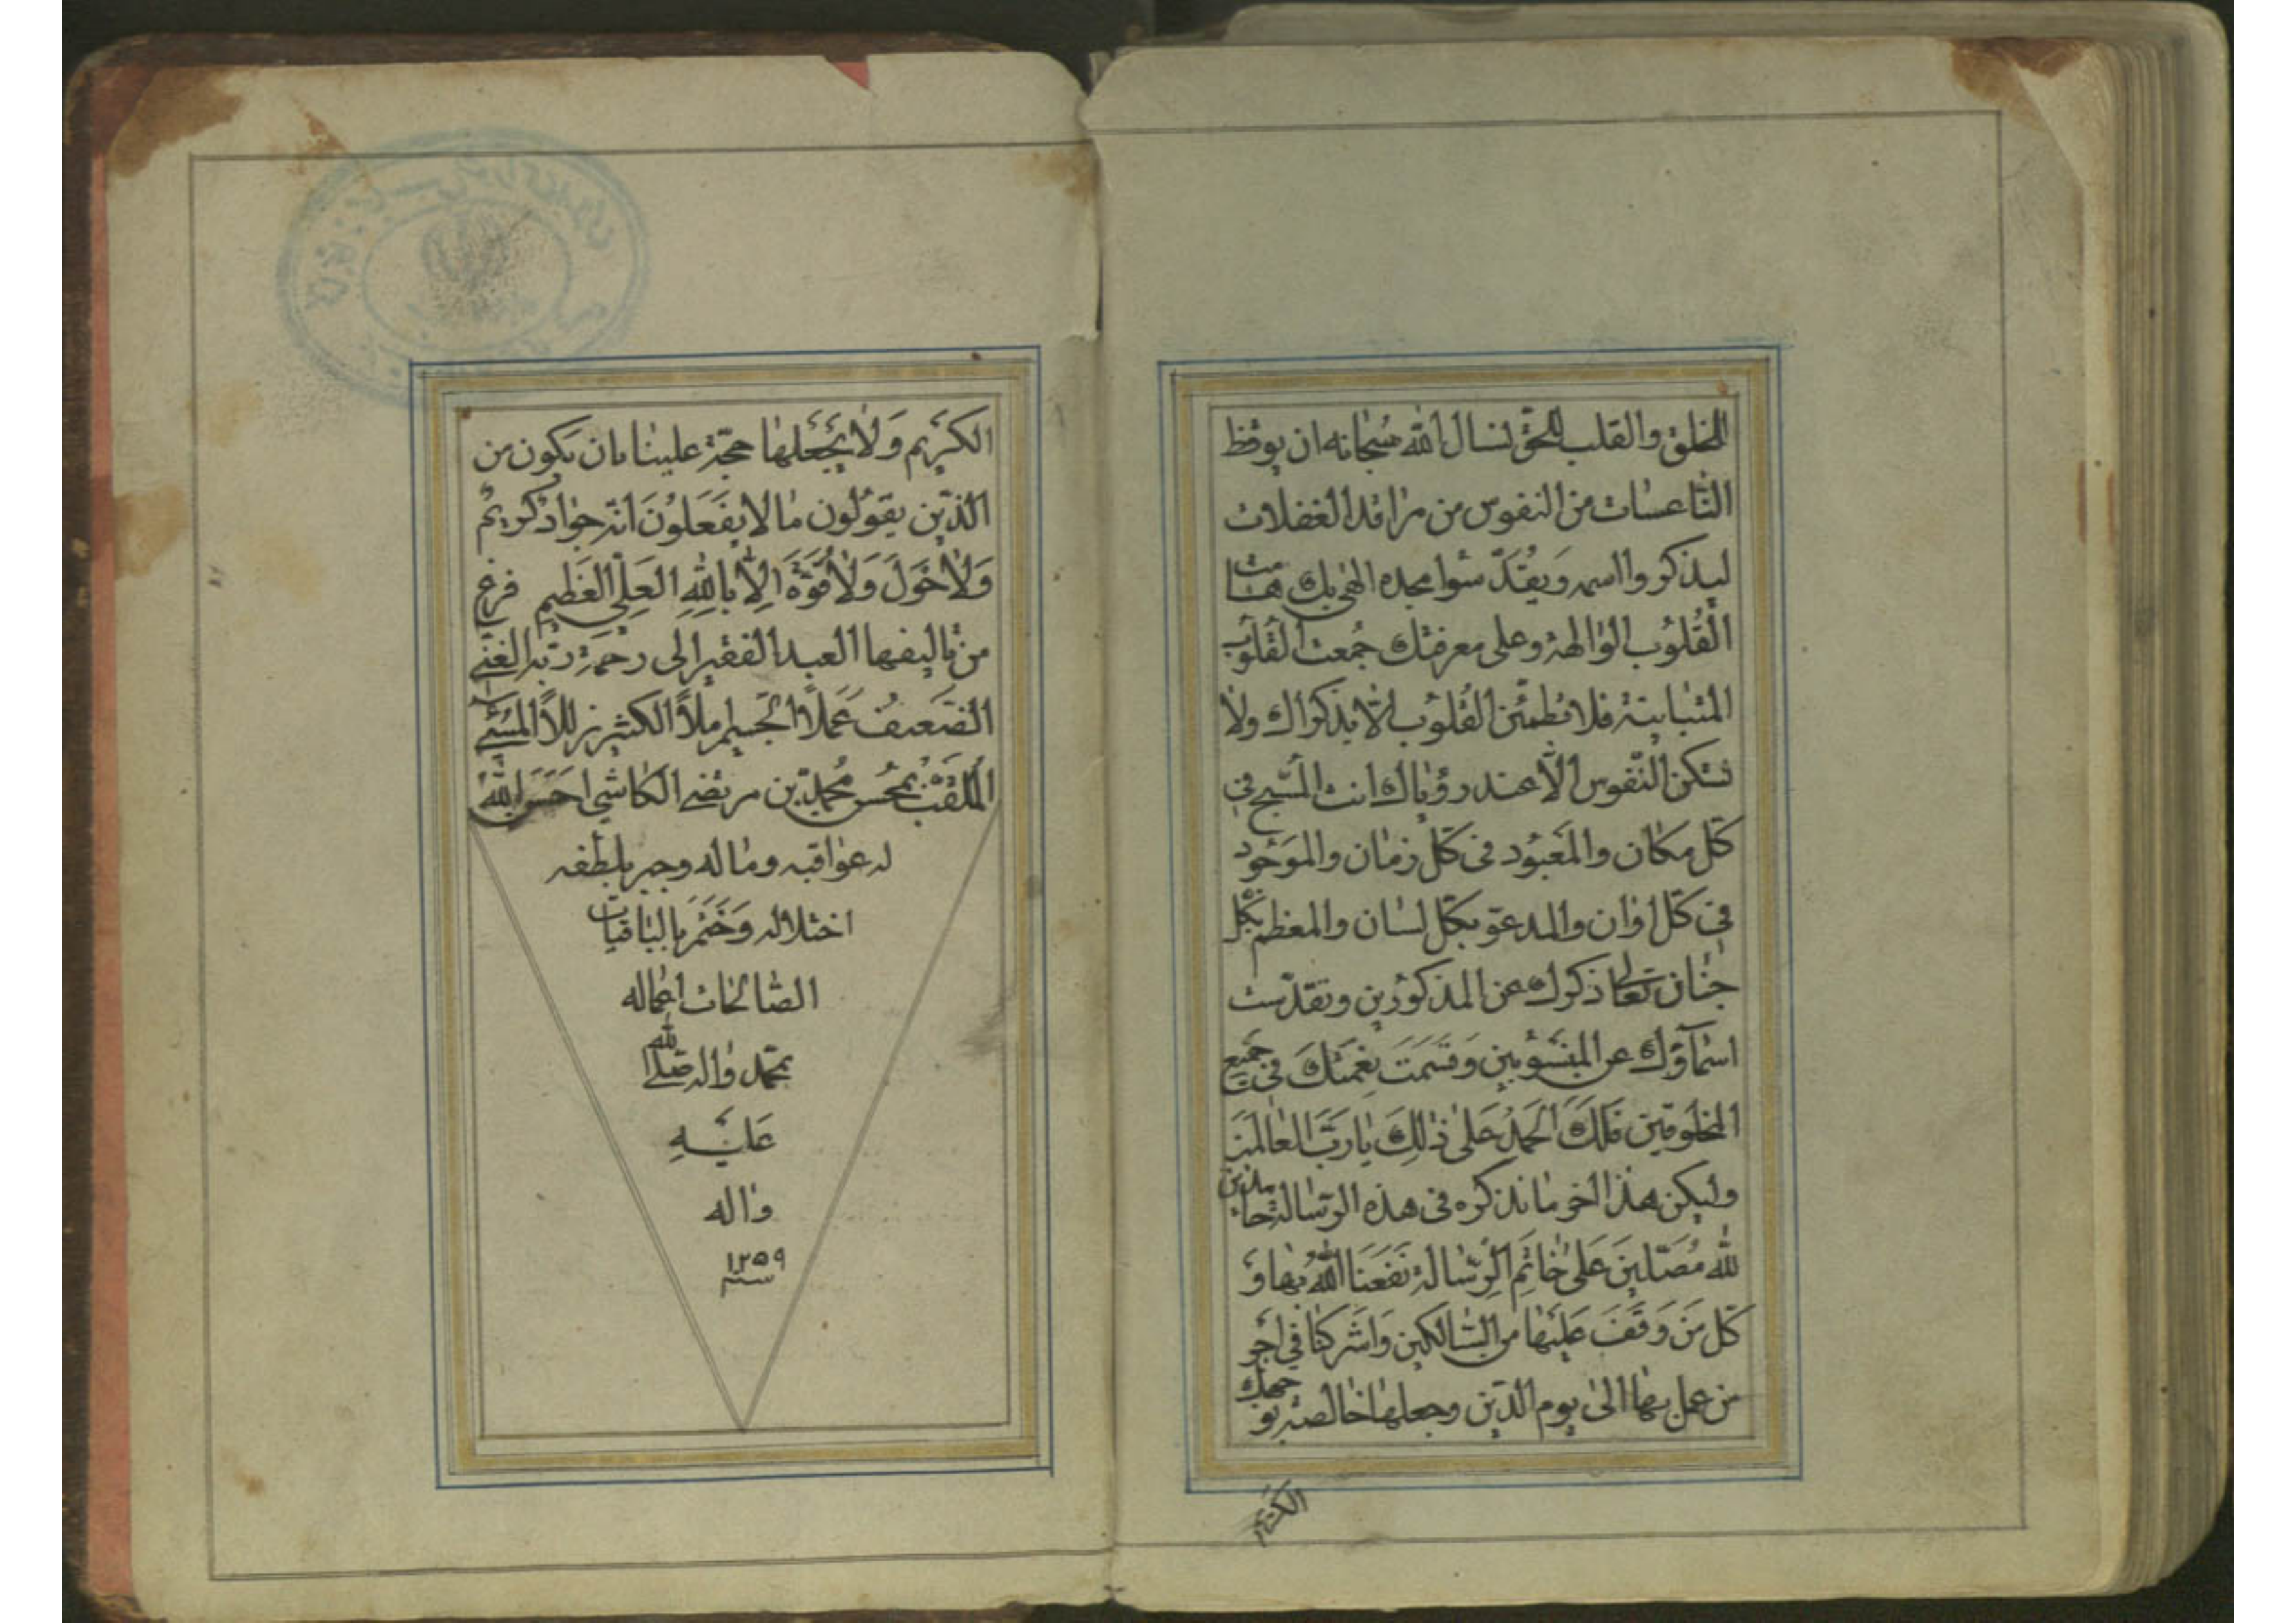 للخلق والقلب للحق نسال الله سبحانه ان يوقظ
الناعسات من النفوس من مراقد الغفلات
ليذكروا اسمه ويقدسوا مجده الهى بك هامت
القلوب الوالهة وعلى معرفتك جمعت القلوب
المتباينة فلا تطمئن القلوب الا بذكراك ولا
تسكن النفوس الا عند رؤياك انت المسبح فى
كل مكان والمعبود فى كل زمان والموجود
فى كل اوان والمدعو بكل لسان والمعظم بكل
جنان تعالى ذكرك عن المذكورين وتقدست
اسماؤك عن المنسوبين وقسمت نعمتك فى جميع
المخلوقين فلك الحمد على ذلك يا رب العالمين
وليكن هذا اخر ما نذكره فى هذه الرسالة حامدين
لله مصلين على خاتم الرسالة نفعنا الله بها و
كل من وقف عليها من السالكين واشركنا فى اجر
من عمل بها الى يوم الدين وجعلها خالصة لوجهك
الكريم
الكريم ولا يجعلها حجة علينا بان نكون من
الذين يقولون ما لا يفعلون انه جواد كريم
ولا حول ولا قوة الا بالله العلى العظيم فرغ
من تاليفها العبد الفقير الى رحمة ربه الغنى
الضعيف عملا الجسيم املا الكثير زللا المسئ
الملقب بمحسن محمد بن مرتضى الكاشى احسن الله
له عواقبه وماله وجبر بلطفه
اختلاله وختم بالباقيات
الصالحات اعماله
بمحمد واله صلى الله
عليه
واله
سنه ١٢٥٩